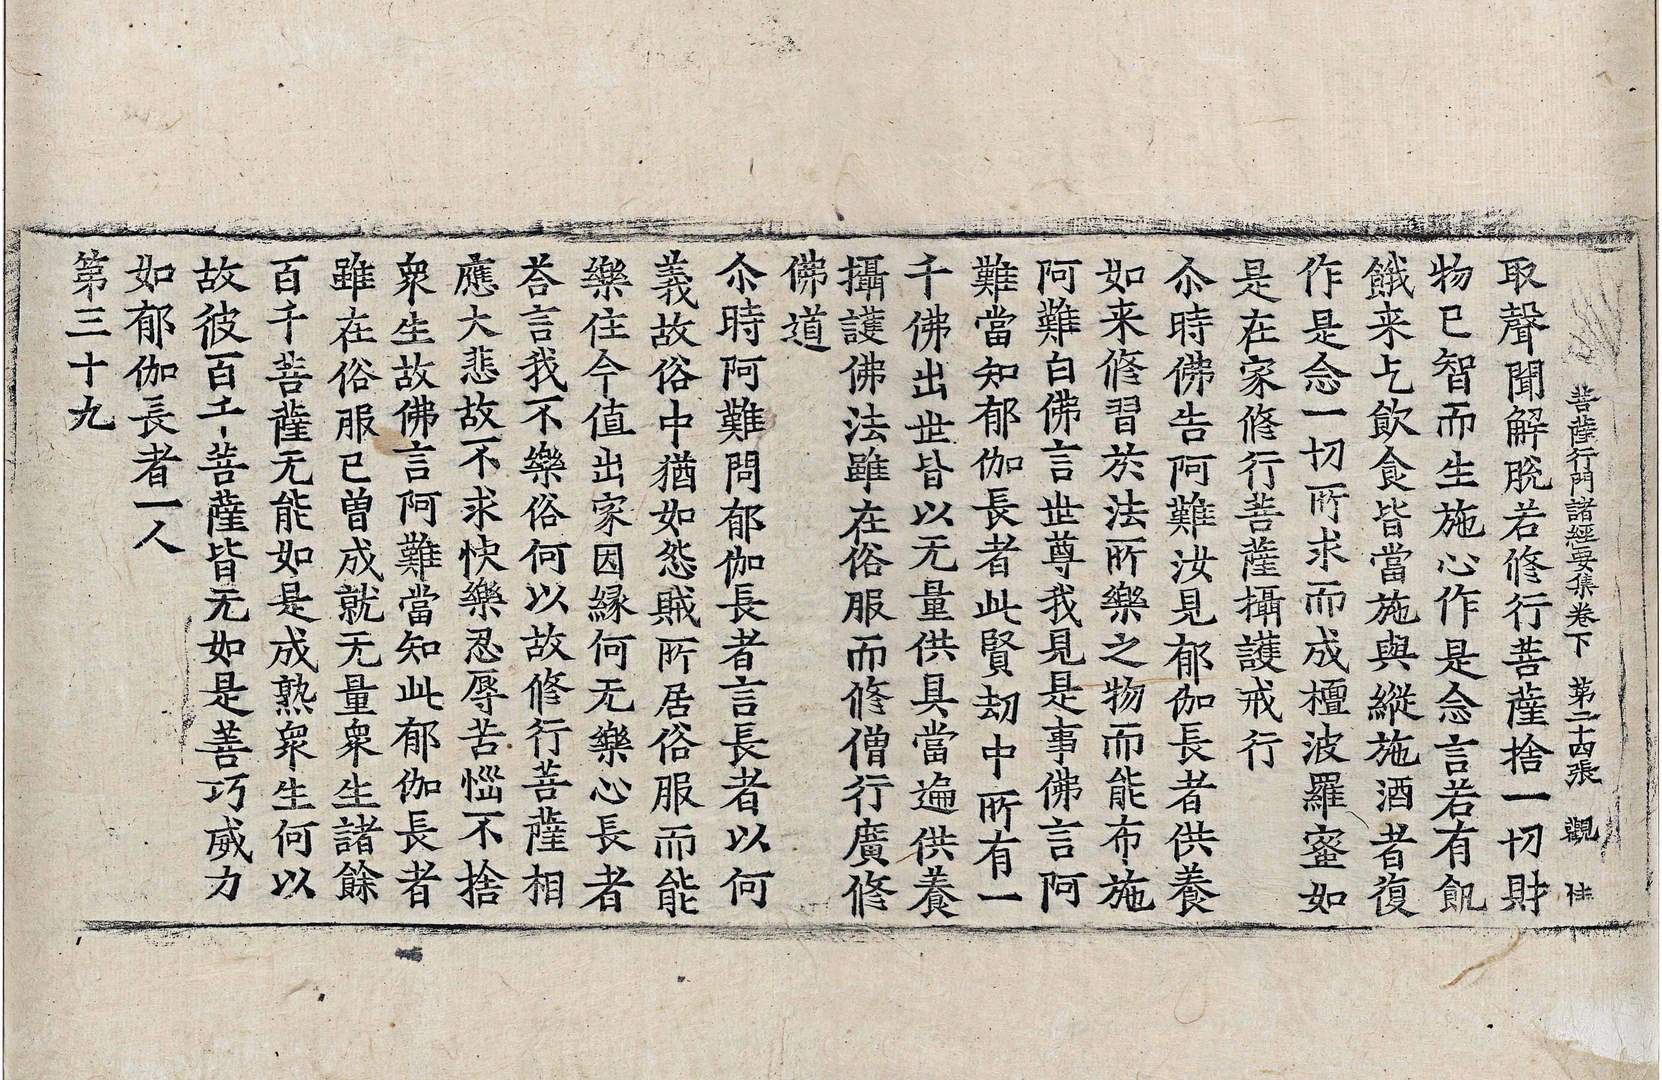 菩薩行門諸經要集卷下　第二十四張　觀
取聲聞解脫若修行菩薩捨一切財
物已智而生施心作是念言若有飢
餓来乞飲食皆當施與縱施酒者復
作是念一切所求而成檀波羅蜜如
是在家修行菩薩攝護戒行
尒時佛告阿難汝見郁伽長者供養
如来修習於法所樂之物而能布施
阿難白佛言世尊我見是事佛言阿
難當知郁伽長者此賢劫中所有一
千佛出世皆以无量供具當遍供養
攝護佛法雖在俗服而修僧行廣修
佛道
尒時阿難問郁伽長者言長者以何
義故俗中猶如怨賊所居俗服而能
樂住今值出家因縁何无樂心長者
荅言我不樂俗何以故修行菩薩相
應大悲故不求快樂忍辱苦惱不捨
衆生故佛言阿難當知此郁伽長者
雖在俗服已曾成就无量衆生諸餘
百千菩薩无能如是成熟衆生何以
故彼百千菩薩皆无如是善巧威力
如郁伽長者一人
第三十九